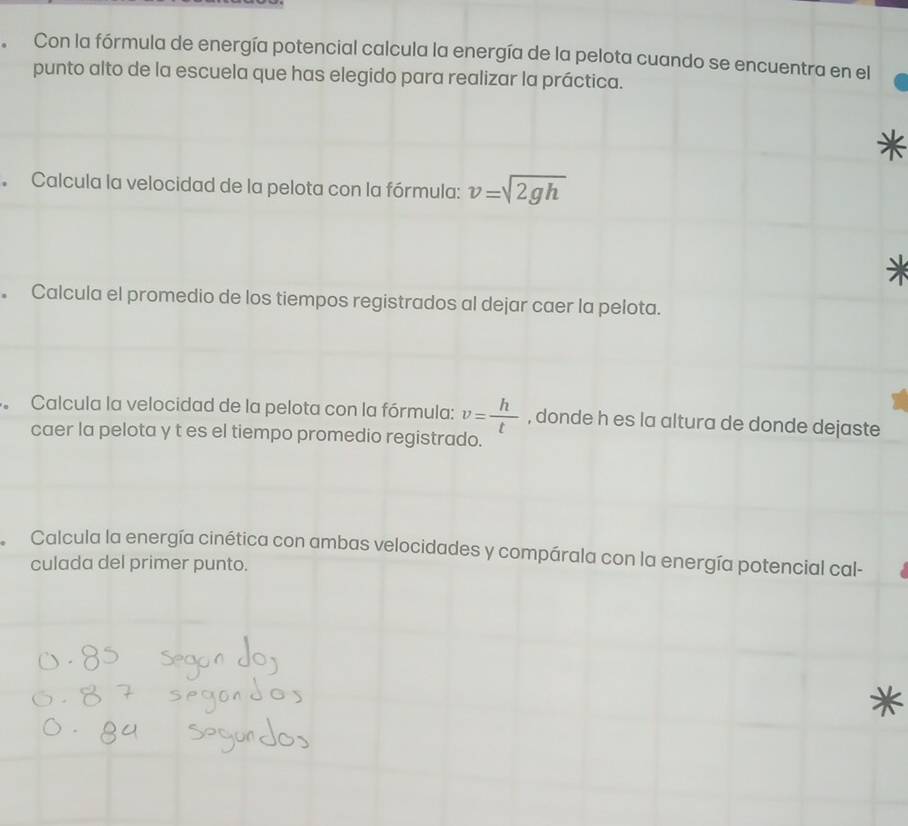 Con la fórmula de energía potencial calcula la energía de la pelota cuando se encuentra en el
punto alto de la escuela que has elegido para realizar la práctica.
Calcula la velocidad de la pelota con la fórmula: v=√2gh
Calcula el promedio de los tiempos registrados al dejar caer la pelota.
Calcula la velocidad de la pelota con la fórmula: v=h/t , donde h es la altura de donde dejaste
caer la pelota y t es el tiempo promedio registrado.
Calcula la energía cinética con ambas velocidades y compárala con la energía potencial cal-
culada del primer punto.
0.85 segundos
0.87 segondos
0.84 segundos